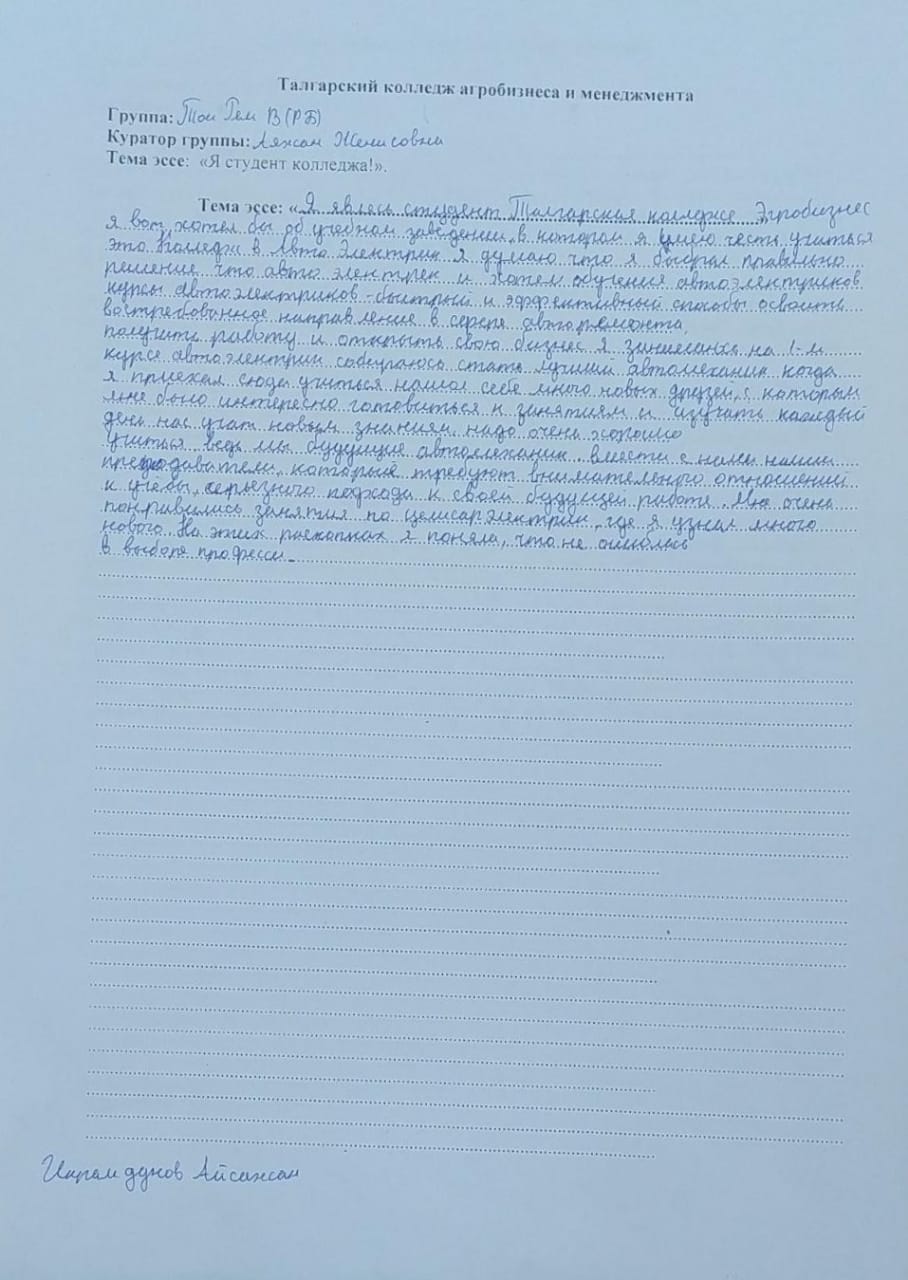 Талгарский колледж агробизнеса и менеджмента
Группа: Тои Рем В (РБ)
Куратор группы: Женисовна
Тема эссе: «Я студент колледжа!».
Тема эссе: «Я являсь студент Талгарская колледже Эгробизнес
я вот хотел бы об учебном заведении, в котором я имею честь учиться
это Колледж в Авто Электрик я думаю что я выбрал правильно
решение что авто электрек и хотем обучения автоэлектриков
курсы автоэлектриков - быстрый и эффективный способы освоить
востребованное направление в сфере авторемонта,
получить работу и открыть свою бизнес я на 1-м
курсе автоэлектрик собираюсь стать лучший автомеханик когда
я приехал сюда учиться нашол себе много новых друзей, с которым
мне было интересно готовиться к занятиям и изучать каждый
день нас учат новым знаниям, надо очень хорошо
учиться ведь мы будущие автомеханик. вмести с нами наши
преподаватели, которые требуют внимательного отношении
к учёбы, серьезного подхода к своей будущей работе. Мне очень
понравились занятия по где я узнал много
нового. На этих раскопках я поняла, что не ошиблась
в выборе професси